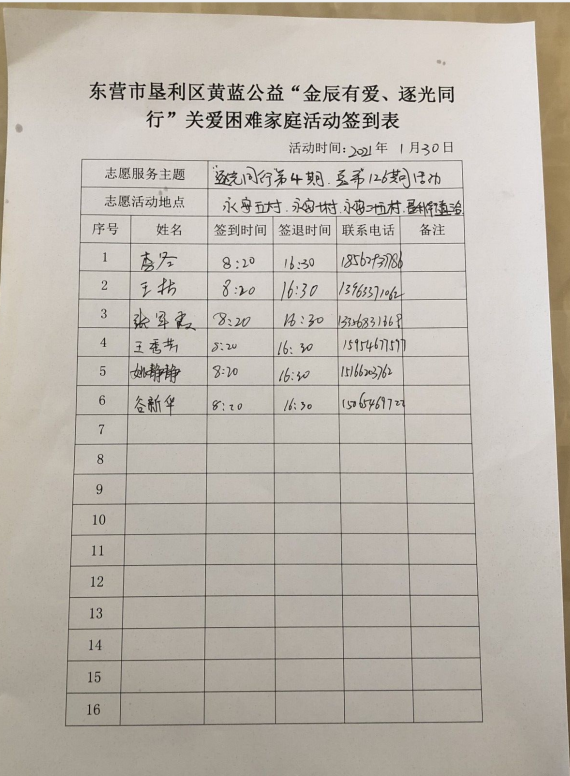 东营市垦利区黄蓝公益“金辰有爱、逐光同
行”关爱困难家庭活动签到表
活动时间：2021年 1月30日
志愿服务主题 逐光同行第4期、至第126期活动
志愿活动地点 永安五村、永安十村、永安二十五村、
序号 姓名 签到时间 签退时间 联系电话 备注
1 8:20 16:30
2 王 8:20 16:30 13963371062
3 张军霞 8:20 16:30
4 王秀芳 8:20 16:30 15954677577
5 姚静静 8:20 16:30 15166203762
6 谷新华 8:20 16:30
7
8
9
10
11
12
13
14
15
16